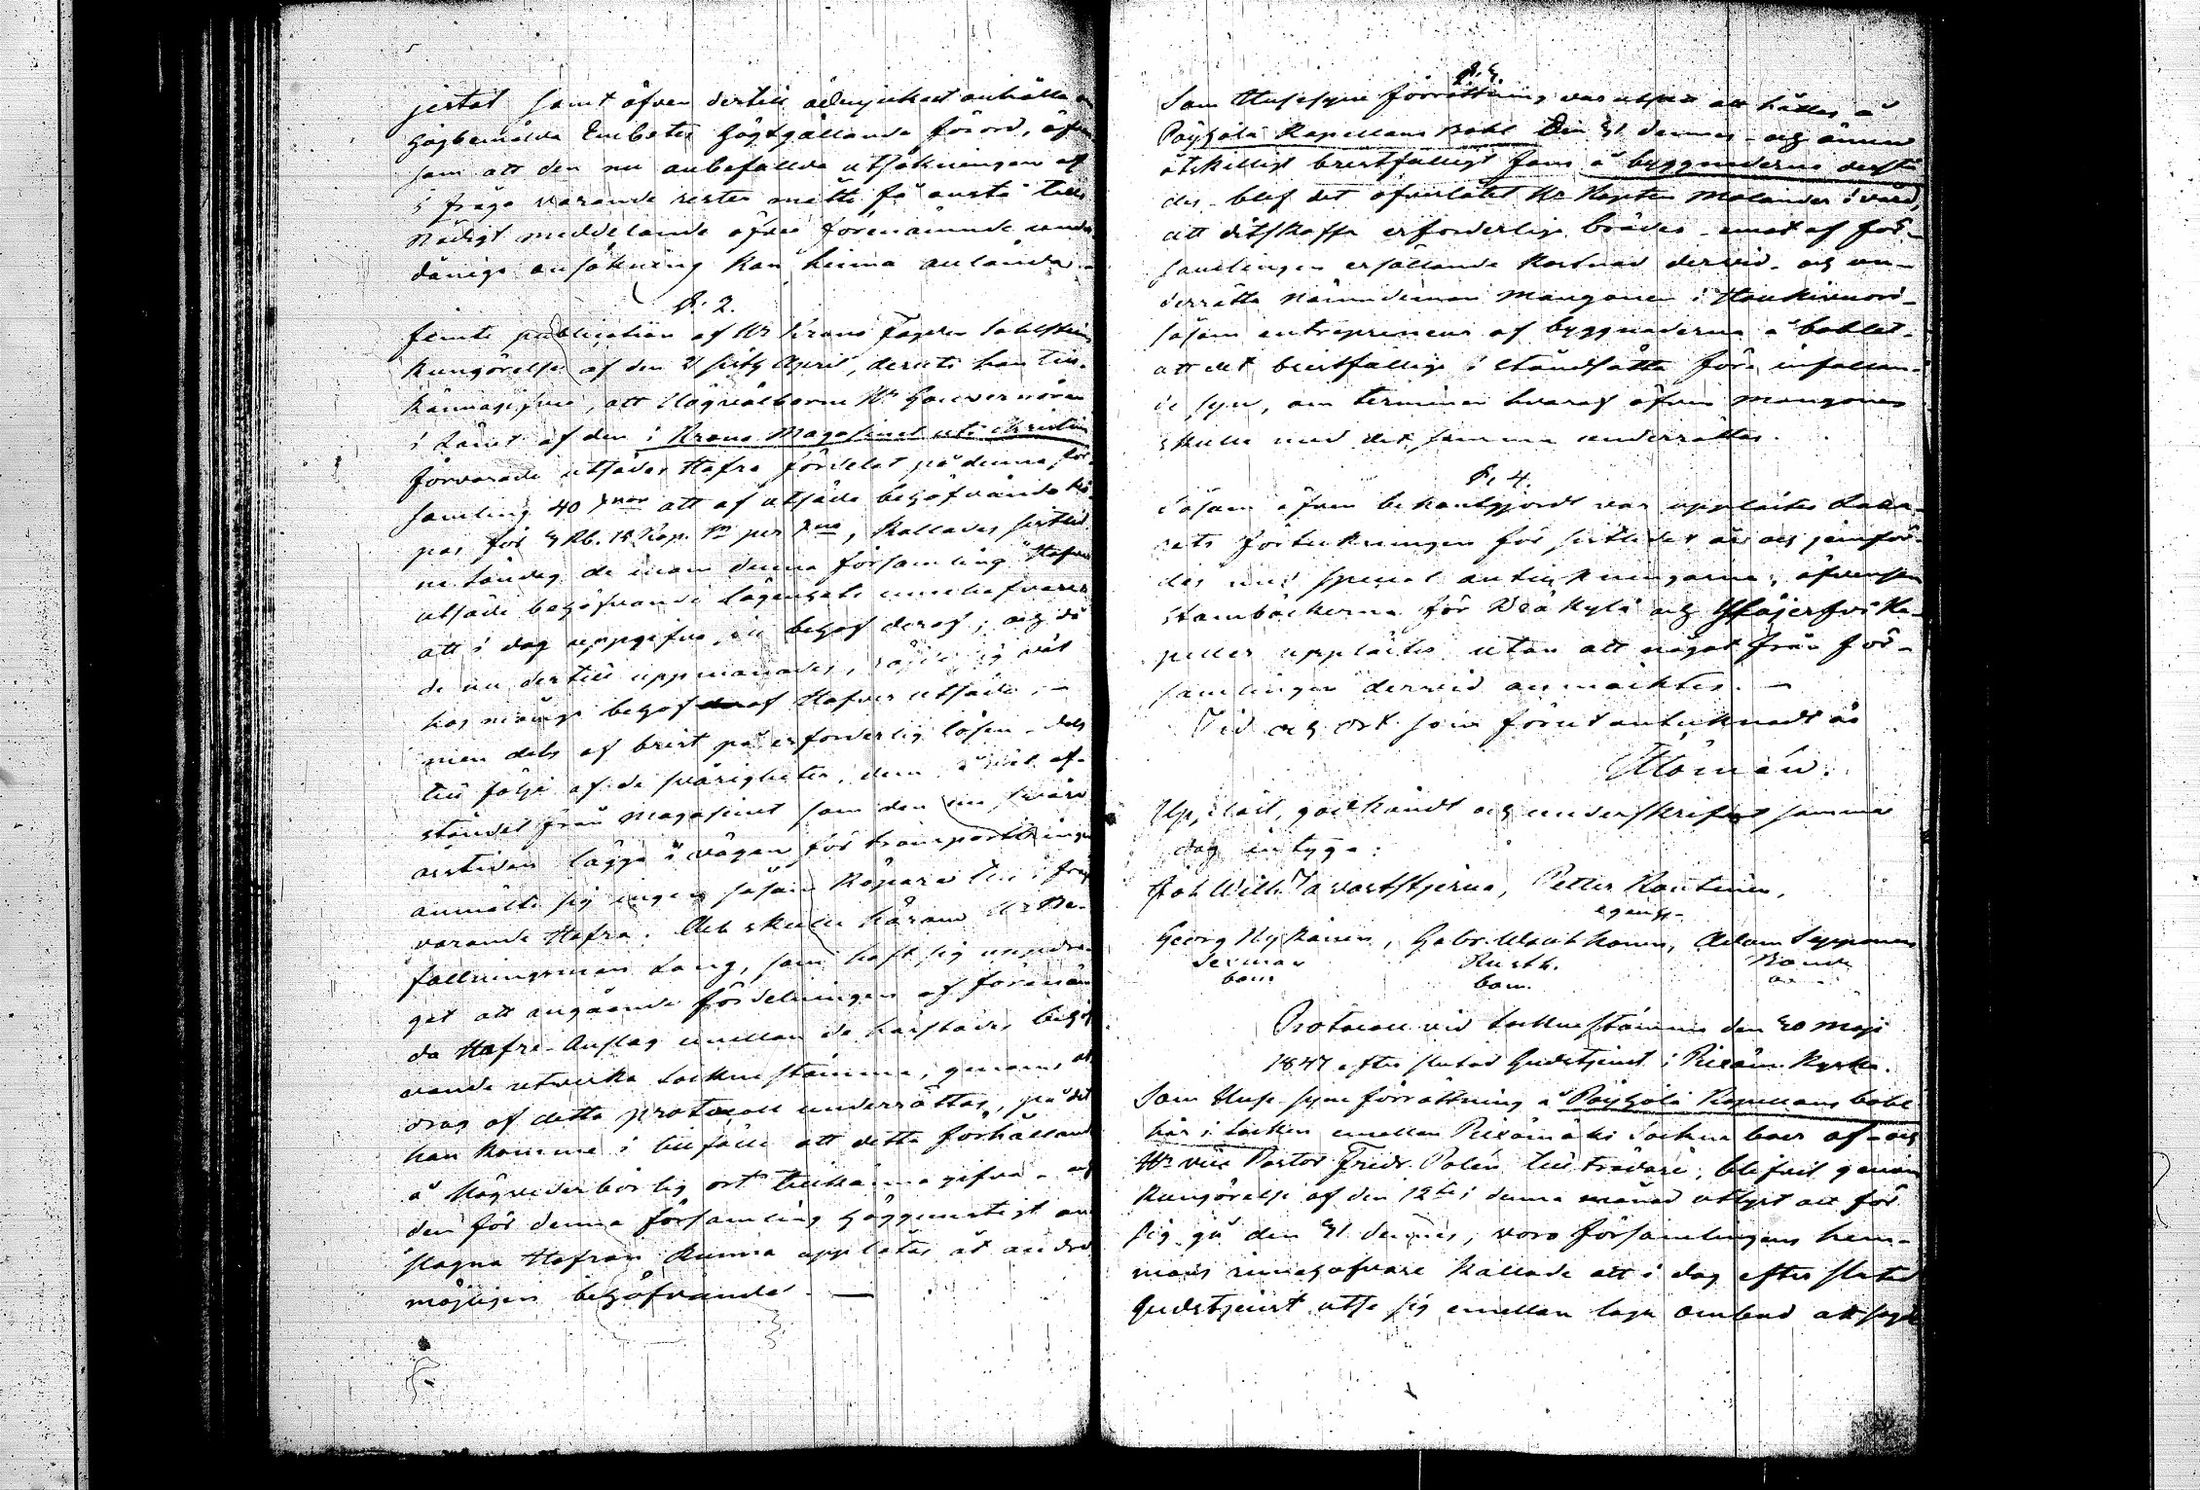 jestät samt äfven dertill ödmjukast anhålla om
högbemälda Embetes högtgällande förord, äfven
som att den nu anbefallda utsökningen af
i fråga varande rester måtte få anstå tills
Nådigt meddelande öfver förenämnde unde
dånige ansökning kan hinna anlända.
§. 2.
publication af Hr Krono Fogden Sahlstein
Kungörelse af den 21 sistl. April, deruti han till-
kännagifver, att Högvälborne Hr Gouvernören
i Länet af den i Krono Magasinet uti Christina
förvarade utsädes Hafra fördelat på denna för-
samling 40 att af utsäde behöfvande kö-
pas för 3 Rb. 15 Kop. Sr per, kallades sistled
ne Söndag de inom denna församling Hafre
utsäde behöfvande Lägenhets innehafvarer
att i dag uppgifva sin behof deraf; och då
de nu dertill uppmanades, röjde sig väl
hos många behof af Hafver utsäde,
men dels af brist på erforderlig lösen, dels
till följe af de svårigheter, dem så väl af-
ståndet från Magasinet som den nu svåra
årstiden lägga i vägen för transporteringen
anmälte sig ingen såsom köpare till i fråga
varande Hafra. Och skulle härom Hr Be-
fallningsman Lang, som haft sig updra-
get att angående fördelningen af förenäm
da Hafre Anslag emellan de härstädes behöf
vande utverka Sockne stämma, genom ut
drag af detta protocoll underrättas, på det
han komme i tillfälle att detta förhållande
å högvederbörlig ort tillkännagifva, och
den för denna församling höggunstigt an
slagna Hafran kunna upplåtas åt andra
möjligen behöfvande. —
§. 3.
Som Husesyns förrättning var utsatt att hållas å
Pöyhölä Kapellans Bohl den 31 dennes och ännu
åtskilligt bristfälligt fans å byggnaderna derstä
des, blef det öfverlåtet Hr Kapten Molander i vård,
att ditskaffa erforderliga bräder emot af för-
samlingen ersättande kostnad dervid, och un-
derrätta Nämndeman Manganen i Haukivuori
såsom entrepreneur af byggnaderna å bohlet,
att det bristfälliga i ståndsätta före infallan-
de syn, om terminen hvaraf äfven Manganen
skulle med det samma underrättas.
§. 4.
Såsom äfven bekantgjordt var upplästes Laza-
rets förteckningen för sistledet år och jemför-
des med special anteckningarna, äfvensom
stamböckerna för Wenäkylä och Kapeller
upplästes utan att något från för-
samlingen dervid anmärktes. —
Tid och ort som förut antecknadt är
Uppläst, godkändt och underskrifvet samma
dag intyga:
Joh Wilh Tavaststjerna, Petter Rautinen,
Georg Nykänen, Gabr. Ulaub hanen, Adam Sepponen
Rusth. Bonde
bom. bom.
Protocoll vid Sockne stämma den 30 Maji
1847 efter slutad Gudstjenst i Pieksäm. Kyrka.
Som Huse syns förrättning å Pöyhölä Kapellans bohl
här i Socken emellan Pieksämäki Sockne boer af- och
Hr vice Pastor Fredr. Polén till trädare, blifvit genom
Kungörelse af den 12te i denna månad utlyst att för
sig gå den 31 dennes, voro församlingens hem-
mans innehafvare kallade att i dag efter slutad
Gudstjenst utse sig emellan laga Ombud att sagde